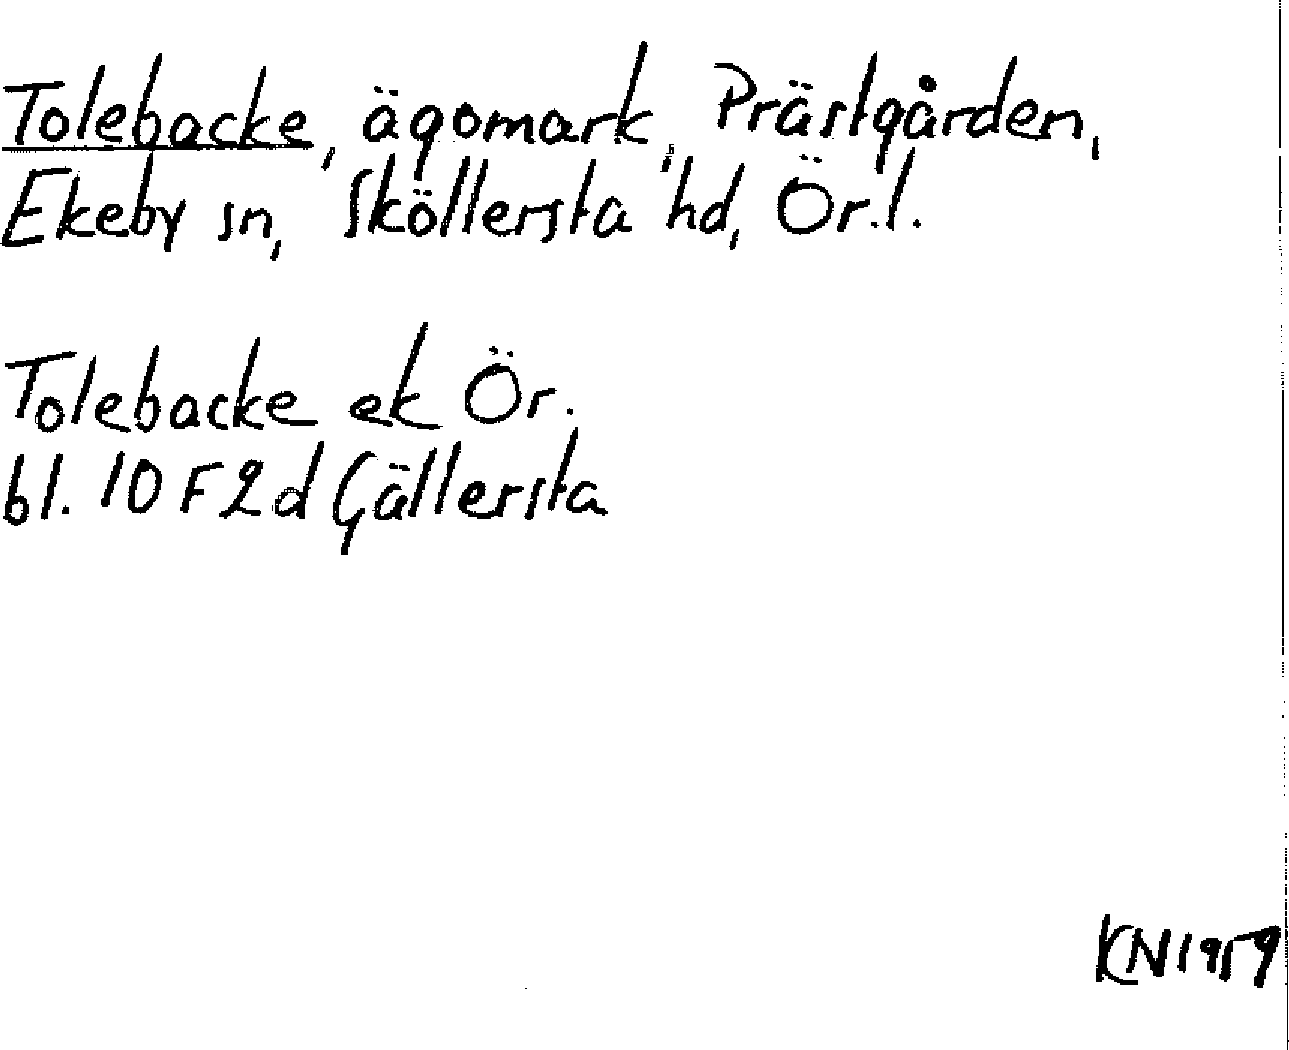 Tolebacke, ägomark, Prästgården,
Ekeby sn, Sköllersta hd, Ör.l.
Tolebacke ek Ör.
bl. 10 F 2 d Gällersta
KN 1959